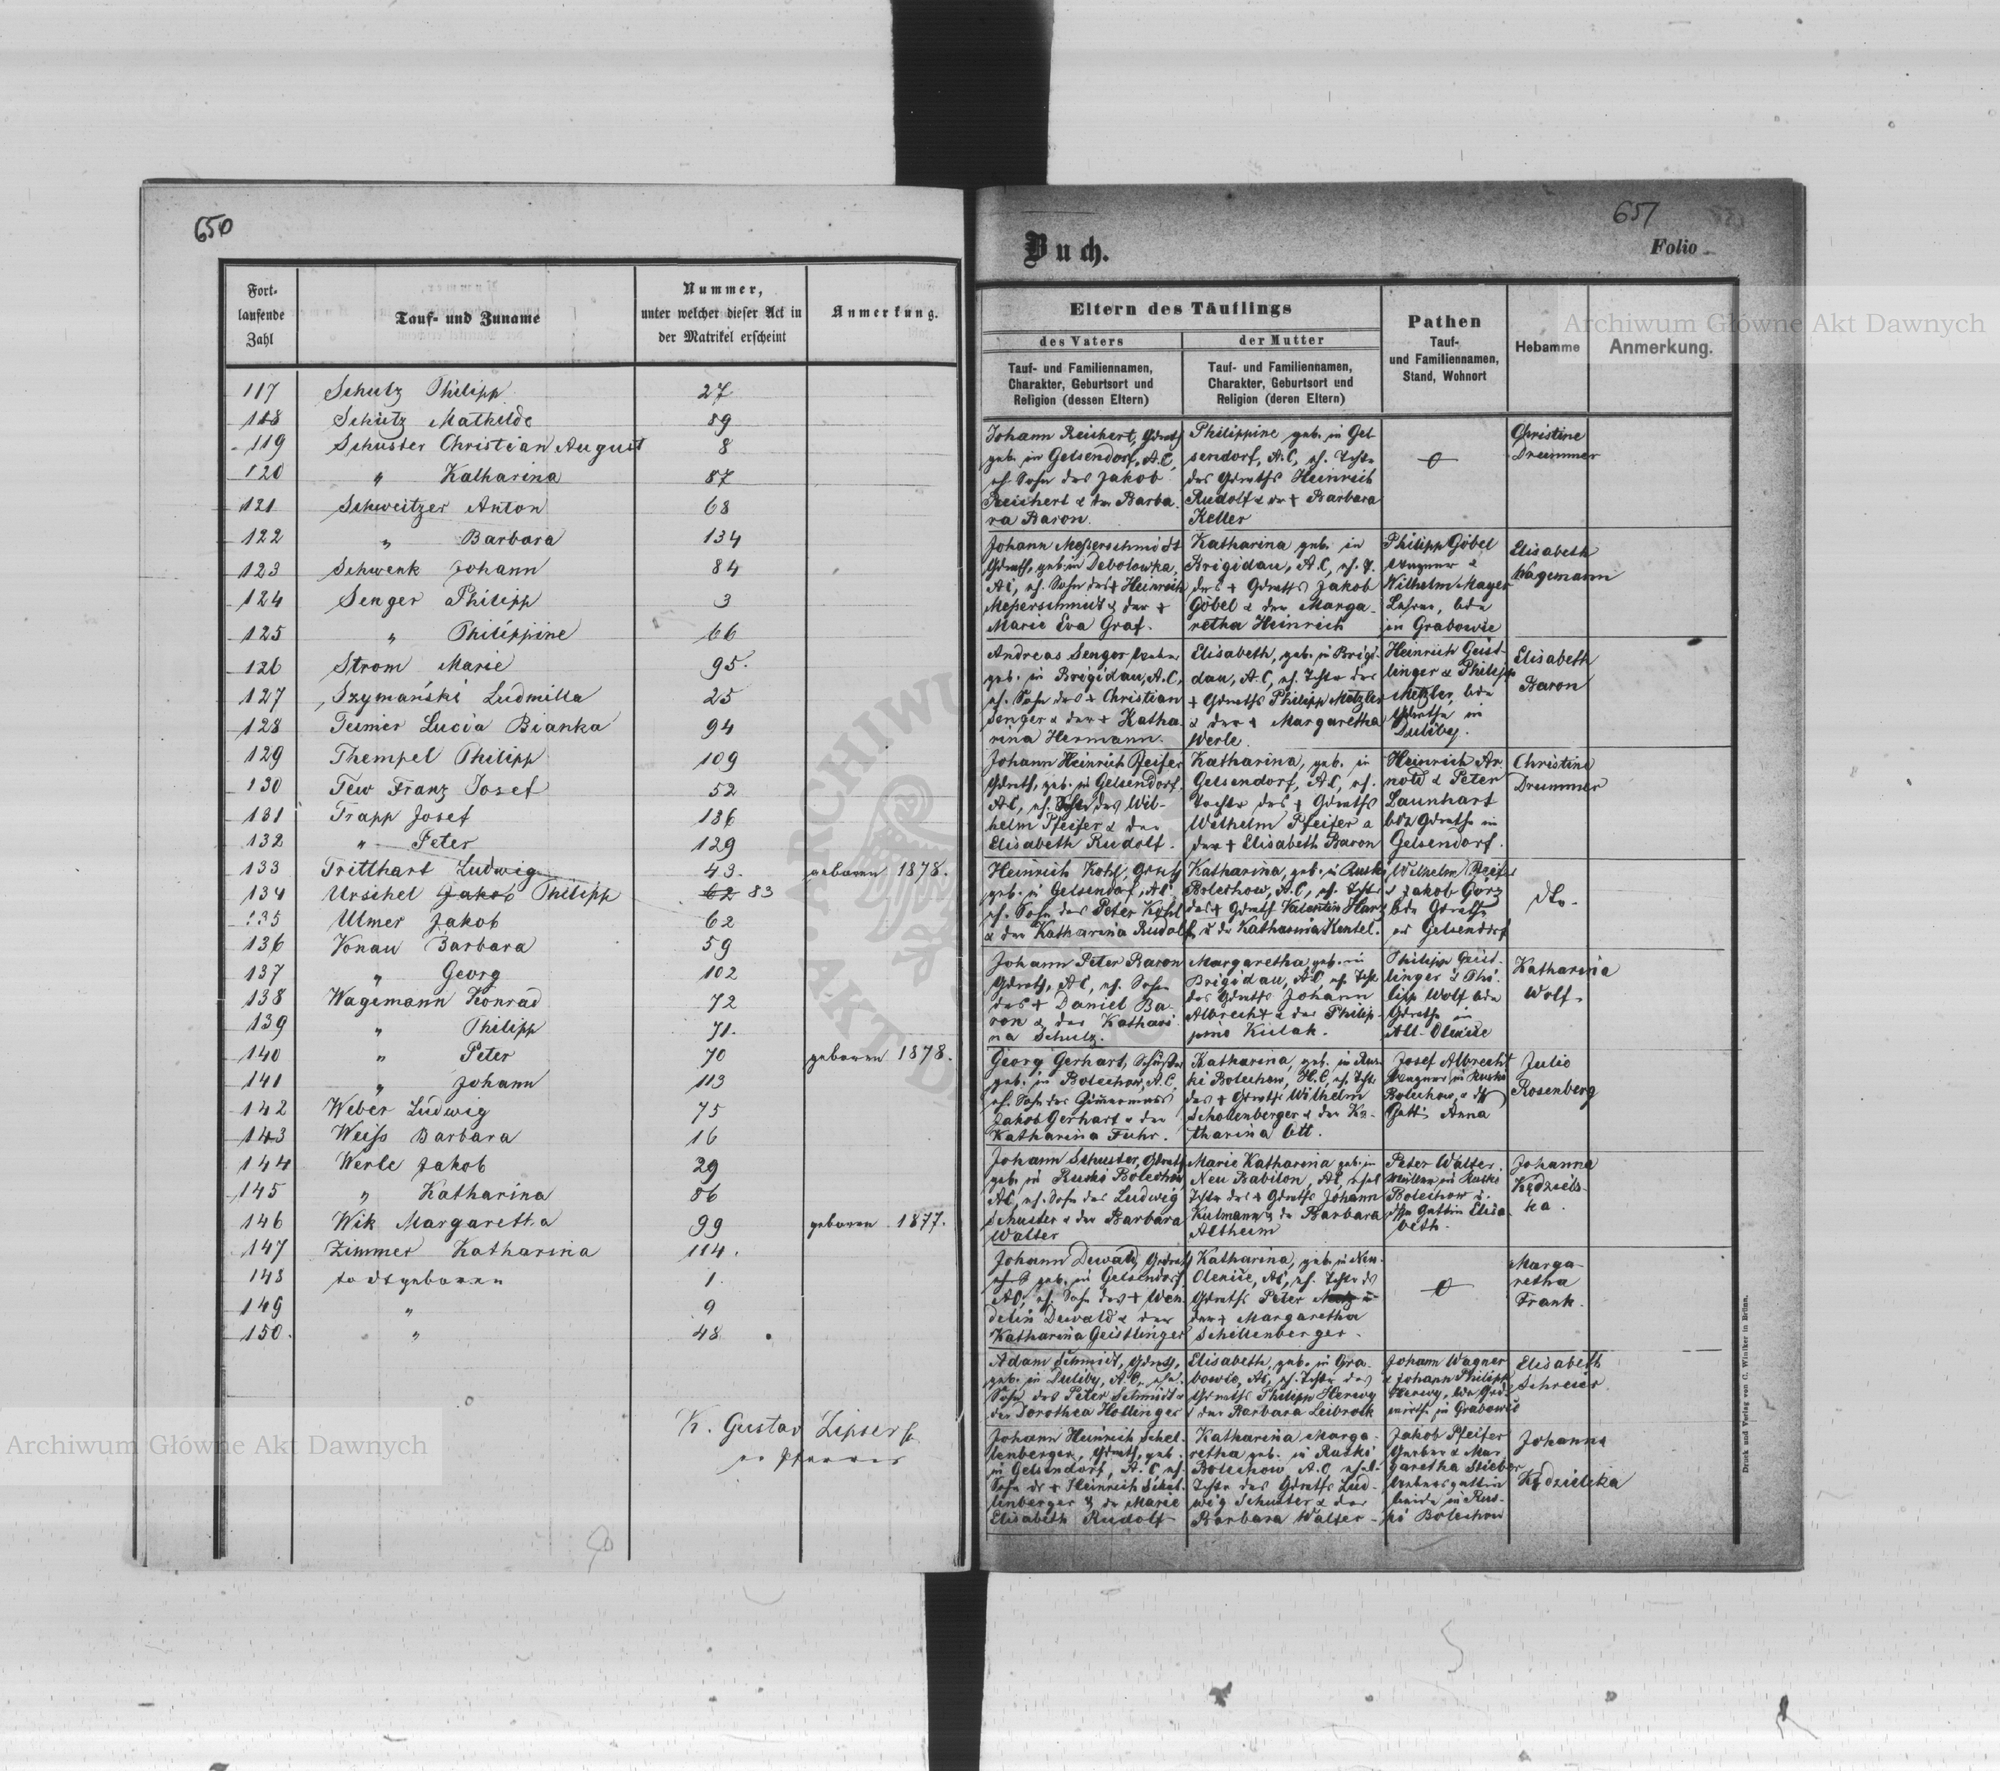 650
Fort-
laufende
Zahl
Tauf- und Zuname
Nummer,
unter welcher dieser Act in
der Matrikel erscheint
Anmerkung.
117 Schutz Philipp 27
118 Schütz Mathilde 89
119 Schuster Christian August 8
120 " Katharina 87
121 Schweitzer Anton 68
122 " Barbara 134
123 Schwenk Johann 84
124 Senger Philipp 3
125 " Philippine 66
126 Strom Marie 95.
127 Szymański Ludmilla 25
128 Teimer Lucia Bianka 94
129 Thempel Philipp 109
130 Tew Franz Josef 52
131 Trapp Josef 136
132 " Peter 129
133 Tritthart Ludwig 43. geboren 1878.
134 Urschel Jakob Philipp 62 83
135 Ulmer Jakob 62
136 Vonau Barbara 59
137 " Georg 102
138 Wagemann Konrad 72
139 " Philipp 71.
140 " Peter 70 geboren 1878.
141 " Johann 113
142 Weber Ludwig 75
143 Weiss Barbara 16
144 Werle Jakob 29
145 " Katharina 86
146 Wik Margaretha 99 geboren 1877.
147 Zimmer Katharina 114.
148 todtgeboren 1.
149 " 9
150. " 48
K. Gustav Zipser
Pfarrer
651
Buch.
Folio
Eltern des Täuflings
des Vaters
der Mutter
Tauf- und Familiennamen,
Charakter, Geburtsort und
Religion (dessen Eltern)
Tauf- und Familiennamen,
Charakter, Geburtsort und
Religion (deren Eltern)
Pathen
Tauf-
und Familiennamen,
Stand, Wohnort
Hebamme
Anmerkung.
Johann Reichert, Gdrwth
geb. in Gelsendorf, A.C,
eh. Sohn des Jakob
Reichert & der Barba-
ra Baron.
Philippine geb. in Gel-
sendorf, A.C, eh. Tchtr
des Gdrwths Heinrich
Rudolf & der + Barbara
Keller
Christine
Drummer
Johann Messerschmidt
Gdrwth, geb. in Debolowka,
AC, eh. Sohn des + Heinrich
Messerschmidt & der +
Marie Eva Graf.
Katharina geb. in
Brigidau, A.C, eh. T.
des + Gdrwths Jakob
Göbel & der Marga-
retha Heinrich
Philipp Göbel
Wagner &
Wilhelm Mayer
Lehrer, bde
in Grabowie
Elisabeth
Wagemann
Andreas Senger
geb. in Brigidau, A.C,
eh. Sohn des + Christian
Senger & der + Katha-
rina Hermann.
Elisabeth, geb. in Brigi-
dau, A.C, eh. Tchtr des
+ Gdrwths Philipp Metzler
& der + Margaretha
Werle.
Heinrich Geist-
linger & Philipp
Metzler, bde
Gdrwthe in
Duliby.
Elisabeth
Baron
Johann Heinrich Pfeifer
Gdrwth, geb. in Gelsendorf,
AC, eh. Sohn des Wil-
helm Pfeifer & der
Elisabeth Rudolf.
Katharina, geb. in
Gelsendorf, AC, eh.
Tochter des + Gdrwths
Wilhelm Pfeifer &
der + Elisabeth Baron
Heinrich Ar-
nold & Peter
Launhart
bde Gdrwthe in
Gelsendorf.
Christine
Drummer
Heinrich Kohl, Gdrwth
geb. in Gelsendorf, AC
eh. Sohn des Peter Kohl
& der Katharina Rudolf
Katharina, geb. in Ruski
Bolechow, A.C, eh. Tchtr
des + Gdrwth Valentin Harz
& der Katharina Kentel.
Wilhelm Pfeifer
& Jakob Görz
bde Gdrwthe
in Gelsendorf
dto.
Johann Peter Baron
Gdrwth, AC, eh. Sohn
des + Daniel Ba-
ron & der Kathari-
na Schulz.
Margaretha geb. in
Brigidau, AC, eh. Tcht
des Gdrwths Johann
Albrecht & der Philip-
pine Kulak.
Philipp Geist-
linger & Phi-
lipp Wolf bde
Gdrwthe in
Alt-Oleksice
Katharina
Wolf.
Georg Gerhart, Schuster
geb. in Bolechow, A.C,
eh. Sohn des Zimmermanns
Jakob Gerhart & der
Katharina Fuhr.
Katharina, geb. in Rus-
ki Bolechow, H.C, eh. Tchtr
des + Gdrwths Wilhelm
Schollenberger & der Ka-
tharina Ott.
Josef Albrecht
Wagner in Ruski
Bolechow, &
Gatt. Anna
Julie
Rosenberg
Johann Schuster, Gdrwth
geb. in Ruski Bolechow
AC, eh. Sohn des Ludwig
Schuster & der Barbara
Walter
Marie Katharina geb. in
Neu Babilon, AC, ehel
Tchtr des + Gdrwths Johann
Kulmann & der Barbara
Altheim
Peter Walter,
in Ruski
Bolechow &
Gattin Elisa-
beth.
Johanna
Kędziels-
ka.
Johann Dewald, Gdrwth
geb. in Gelsendorf
AC, eh. Sohn des + Wen-
delin Dewald & der
Katharina Geistlinger
Katharina, geb. in Neu-
Oleksice, AC, eh. Tchtr des
Gdrwths Peter
der + Margaretha
Schellenberger.
Marga-
retha
Frank.
Adam Schmidt, Gdrwth,
geb. in Duliby, A.C, ehel.
Sohn des Peter Schmidt &
der Dorothea Hollinger
Elisabeth, geb. in Gra-
bowie, AC, eh. Tchtr des
Gdrwths Philipp Herwy
& der Barbara Leibrock
Johann Wagner
& Johann Philipp
Herwy, bde Grd-
wirthe in Grabowie
Elisabeth
Schreier
Johann Heinrich Schel-
lenberger, Gdrwth, geb.
in Gelsendorf, A.C, eh.
Sohn des + Heinrich Schel-
lenberger & der Marie
Elisabeth Rudolf
Katharina Marga-
retha geb. in Ruski
Bolechow A.C ehel.
Tchtr des Gdrwths Lud-
wig Schuster & der
Barbara Walter
Jakob Pfeifer
Gerber & Mar-
garetha Stieber
Webersgattin
beide in Rus-
ki Bolechow
Johanna
Kędzielska
Druck und Verlag von C. Winiker in Brünn.
Archiwum Główne Akt Dawnych
Archiwum Główne Akt Dawnych